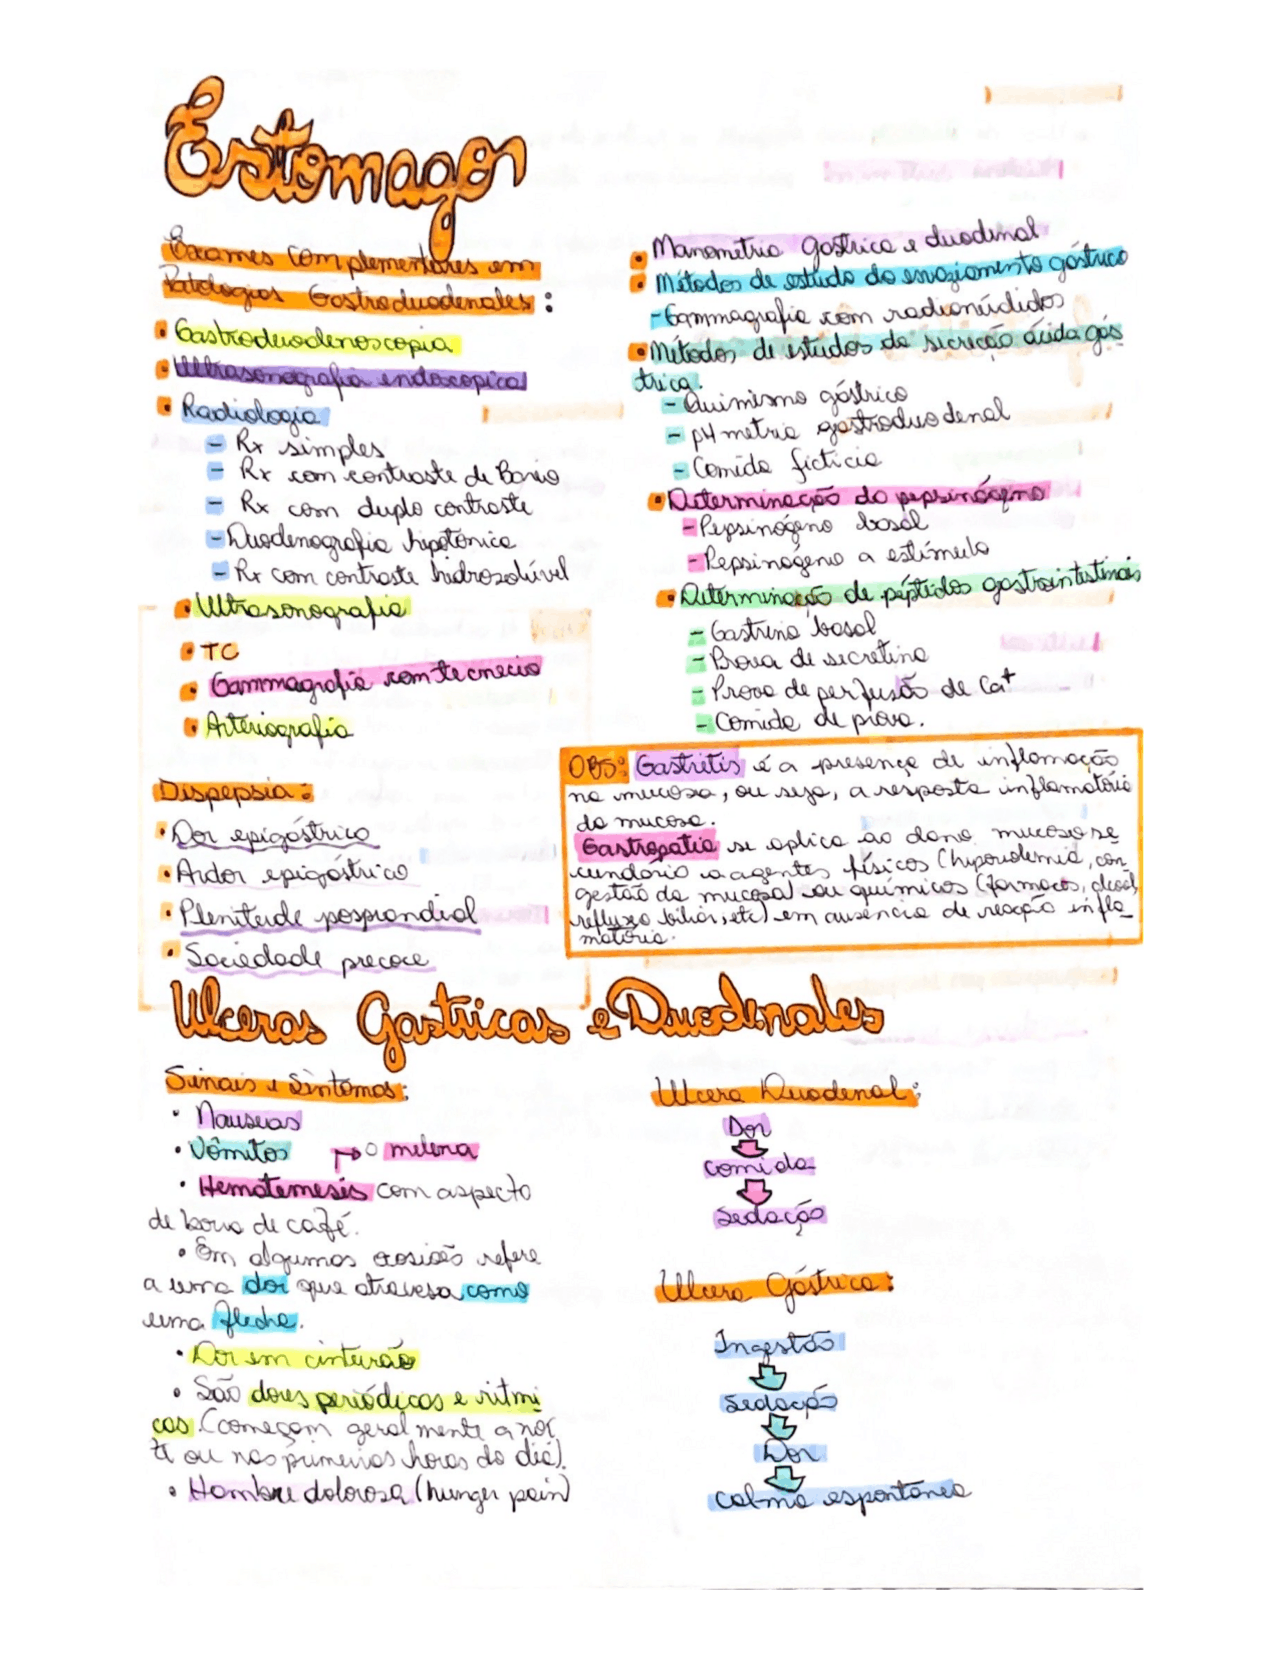 Estomago
Exames Complementares em
Patologias Gastroduodenales:
• Gastroduodenoscopia
• Ultrasonografia endoscopica
• Radiologia
- Rx simples
- Rx com contraste de Bario
- Rx com duplo contraste
- Duodenografia hipotônica
- Rx com contraste hidrosolúvel
• Ultrasonografia
• TC
• Gammagrafia com tecnecio
• Arteriografia
Dispepsia:
• Dor epigástrica
• Ardor epigástrico
• Plenitude posprandial
• Saciedade precoce
• Manometria gastrica e duodenal
• Métodos de estudo do envaziamento gástrico
- Gammagrafia com radionúclidos
• Métodos de estudos da secreção ácida gás
trica.
- Quimismo gástrico
- pH metria gastroduodenal
- Comida ficticia
• Determinação do pepsinógeno
- Pepsinógeno basal
- Pepsinógeno a estímulo
• Determinação de péptidos gastrointestinais
- Gastrina basal
- Prova de secretina
- Prova de perfusão de Ca+
- Comida de prova.
OBS: Gastritis é a presença de inflamação
na mucosa, ou seja, a resposta inflamatória
da mucosa.
Gastropatia se aplica ao dano mucoso se
cundário a agentes físicos (hipovolemia, con
gestão da mucosa) ou químicos (farmacos, alcool,
refluxo biliar, etc) em ausência de reação infla_
matória.
Ulceras Gastricas e Duodenales
Sinais e Sintomas:
• Nauseas
• Vômitos → melena
• Hematemesis com aspecto
de borra de café.
• Em algumas ocasiões refere
a uma dor que atravesa como
uma flecha.
• Dor em cinturão
• São dores periódicas e ritmi
cas. (começam geralmente a noi
te ou nas primeiras horas do dia).
• Hambre dolorosa (hunger pain)
Ulcera Duodenal:
Dor
comida
Sedação
Ulcera Gástrica:
Ingestão
Sedação
Dor
Calma espontânea